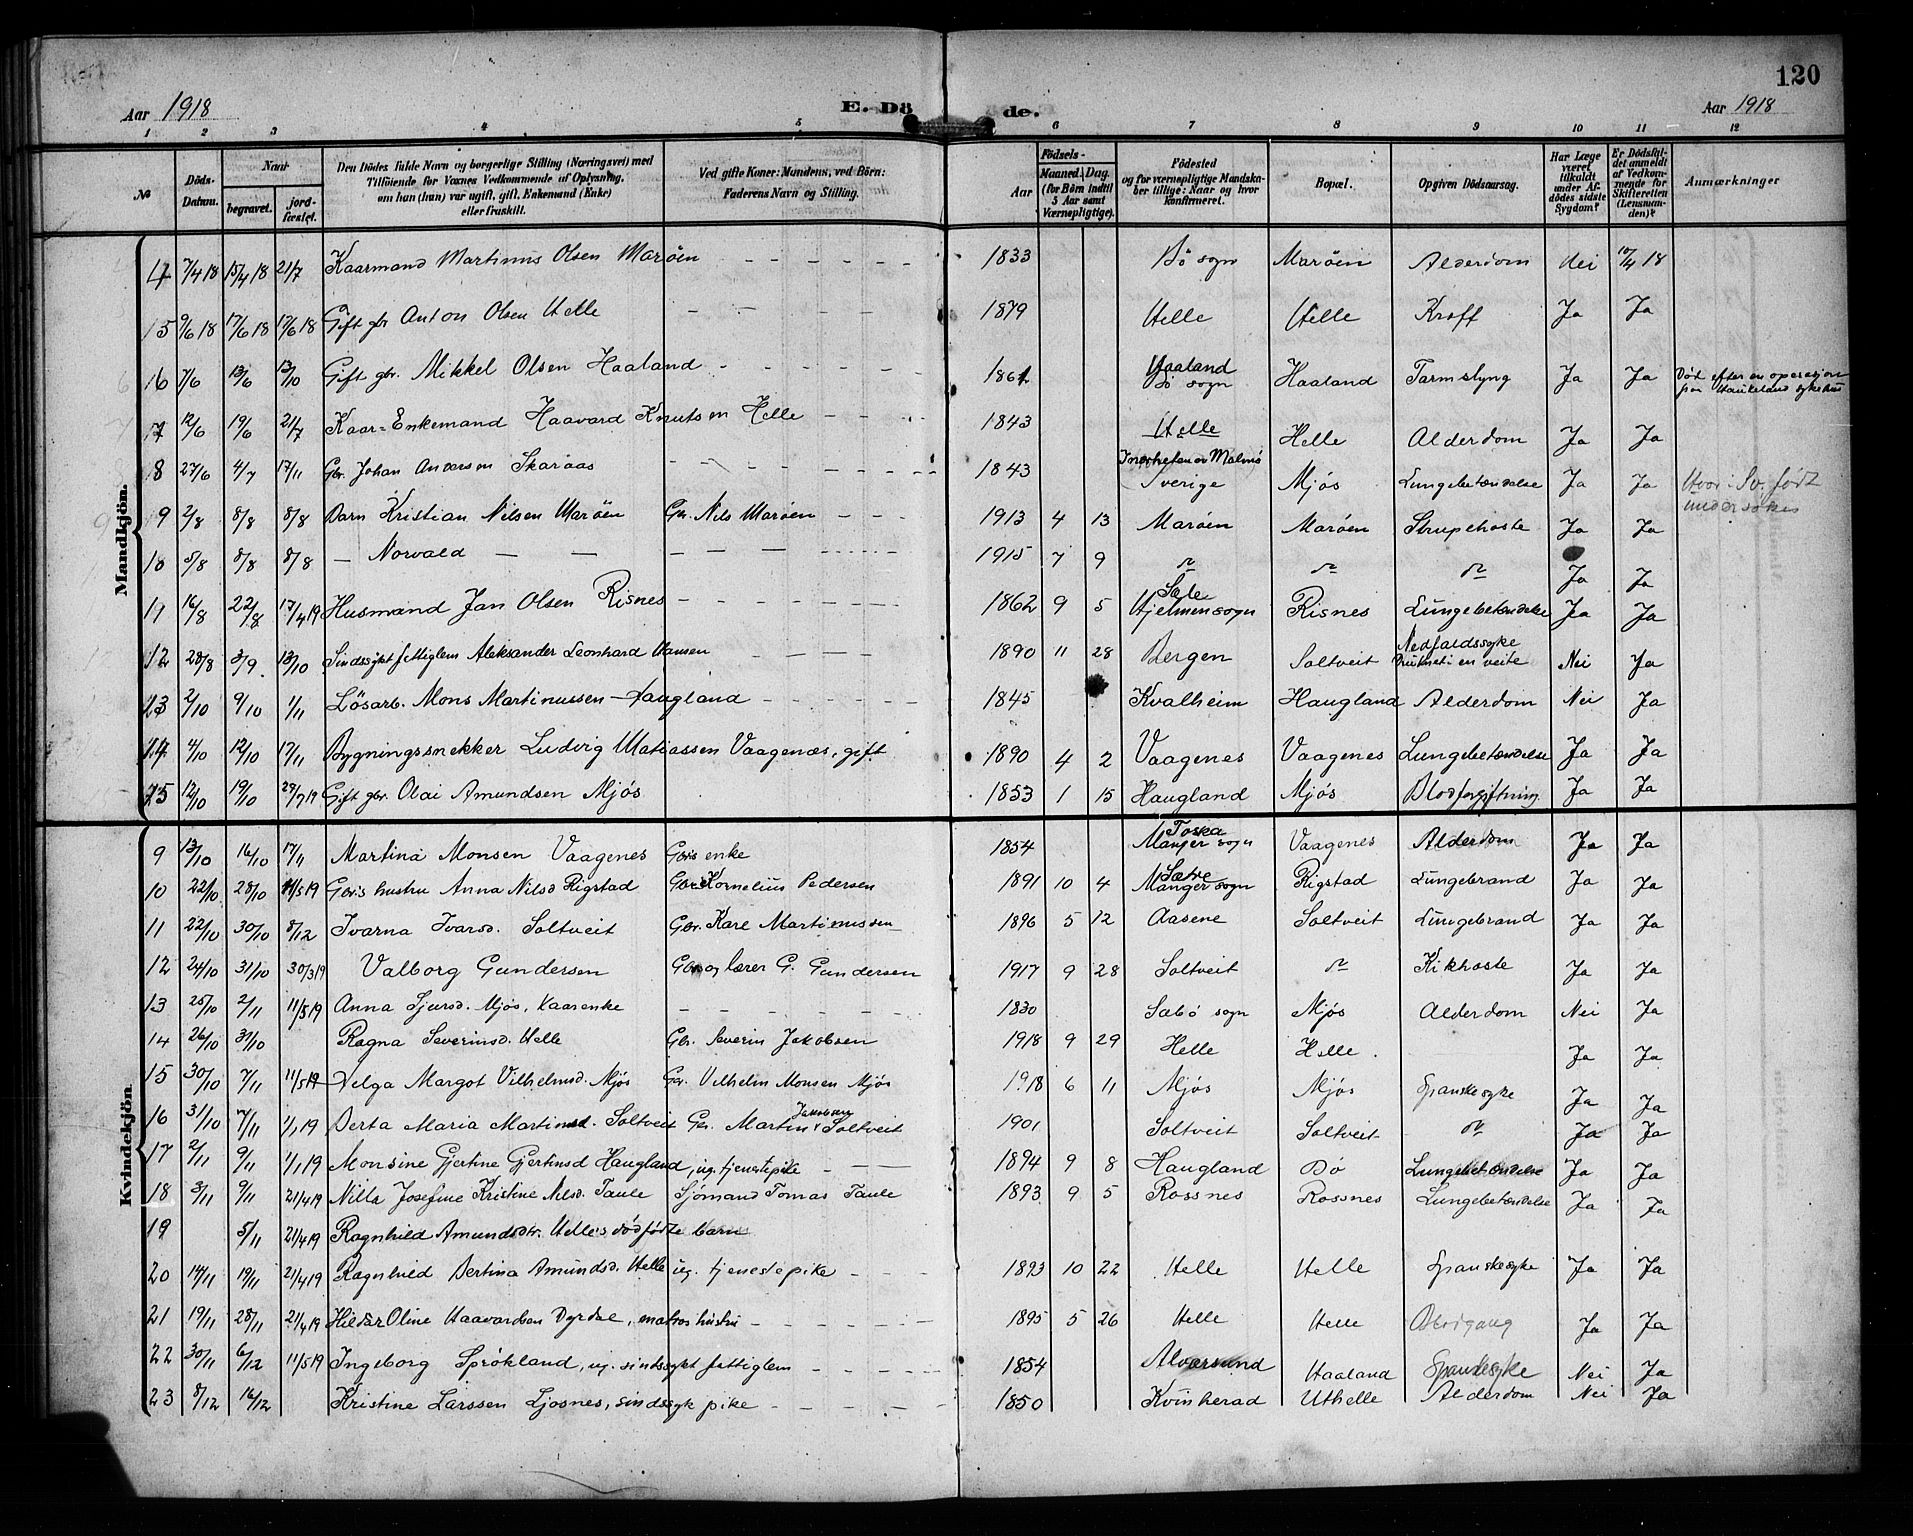 120
Aar 1918 E. Dö de. Aar 1918
1 2 3 4 5 6 7 8 9 10 11 12
№ Döds-Datum. Naar begravet. jordfæstet. Den Dödes fulde Navn og borgerlige Stilling (Næringsvei) med Tilföiende for Voxnes Vedkommende af Oplysning, om han (hun) var ugift, gift, Enkemand (Enke) eller fraskilt. Ved gifte Koner: Mandens, ved Börn: Faderens Navn og Stilling. Födsels- Aar Maaned. Dag. (for Börn indtil 5 Aar samt Værnepligtige). Födested og for værnepligtige Mandskaber tillige: Naar og hvor konfirmeret. Bopæl. Opgiven Dödsaarsag. Har Læge været tilkaldt under Afdödes sidste Sygdom? Er Dödsfaldet anmeldt af Vedkommende for Skifteretten (Lensmanden)? Anmærkninger
Mandkjön.
7/4 18 15/4 18 21/7 Kaarmand Martinus Olsen Maröen 1833 Bö sogn Maröen Alderdom Nei 10/4 18
15 9/6 18 17/6 18 17/6 18 Gift gbr Anton Olsen Helle 1879 Helle Helle Kræft Ja Ja
16 7/6 13/6 13/10 Gift gbr. Mikkel Olsen Haaland Haaland Bö sogn Haaland Tarmslyng Ja Ja Död efter en operasjon paa Haukeland sykehus
17 12/6 19/6 21/7 Kaar-Enkemand Haavard Knutsen Helle 1843 Helle Helle Alderdom Ja Ja
8 27/6 4/7 17/11 Gbr. Johan Andersen Skaraas 1843 Malmö Sverige Mjös Lungebetændelse Ja Ja Hvor i Sv. född undersökes
9 2/8 8/8 8/8 Barn Kristian Nilsen Maröen Gbr. Nils Maröen 1913 4 13 Maröen Maröen Strupehoste Ja Ja
10 5/8 8/8 8/8 — Norvald — — — 1915 7 9 Ja Ja
16/8 22/8 17/4 19 Husmand Jan Olsen Risnes 1862 9 5 Sæle Hjelmensogn Risnes Lungebetændelse Ja Ja
12 28/8 3/9. 13/10 Sindssykt fattiglem Aleksander Leonhard Hansen 1890 11 28 Bergen Soltveit Nedfaldssyke Druknet i en veite Nei Ja
13 2/10 9/10 1/11 Lösarb. Mons Martinussen Haugland 1845 Kvalheim Haugland Alderdom Nei Ja
14 4/10 12/10 17/11 Bygningssnekker Ludvig Matiassen Vaagenes, gift 1890 4 2 Vaagenes Vaagenes Lungebetændelse Ja Ja
15 12/10 19/10 27/7 19 Gift gbr. Olai Amundsen Mjös 1853 1 15 Haugland Mjös Blodforgiftning. Ja Ja
Kvindekjön
9 13/10 16/10 17/11 Martina Monsen Vaagenes Gbrs enke 1854 Toska Manger sogn Vaagenes Alderdom Ja Ja
10 22/10 28/10 11/5 19 Gbrs hustru Anna Nilsd Rigstad Gbr Kornelius Pedersen 1891 10 4 Sætre Manger sogn Rigstad Lungebrand Ja Ja
11 22/10 30/10 8/12 Ivarna Ivarsd. Soltveit Gbr. Kare Martinussen 1896 5 12 Aasene Soltveit Lungebrand Ja Ja
12 24/10 31/10 30/3 19 Valborg Gundersen Gbr og lærer G. Gundersen 1917 9 28 Soltveit Kikhoste Ja Ja
13 25/10 2/11 11/5 19 Anna Sjursd. Mjös, Kaarenke 1830 Sæbö sogn Mjös Alderdom Nei Ja
14 26/10 31/10 Ragna Severinsd. Helle Gbr. Severin Jakobsen 1918 9 29 Helle Helle. Ja Ja
15 30/10 7/11 11/5 19 Helga Margot Vilhelmsd. Mjös Gbr. Vilhelm Monsen Mjös 1918 6 11 Mjös Mjös Spanskesyke Ja Ja
16 31/10 7/11 1/1 19 Berta Maria Martinsd. Soltveit Gbr. Martin Jakobsen Soltveit 1901 Soltveit Soltveit Ja Ja
17 2/11 9/11 1/1 19 Monsine Gjertine Gjertinsd Haugland, ug. tjenestepike 1894 9 8 Haugland Bö Lungebetændelse Ja Ja
18 3/11 9/11 21/4 19 Nilla Josefine Kristine Nilsd. Taule Sjömand Tomas Taule 1893 9 5 Rossnes Rossnes Lungebetændelse Ja Ja
19 5/11 21/4 19 Ragnhild Amundsdtr. Helle's dödfödte barn
20 14/11 19/11 21/4 19 Ragnhild Bertina Amundsd. Helle ug. tjenestepike 1893 10 22 Helle Helle Spanskesyke Ja Ja
21 19/11 28/11 21/4 19 Hilda Oline Haavardsen Dyrdal, matros hustru 1895 5 26 Helle Helle Ja Ja
22 30/11 6/12 11/5 19 Ingeborg Sprökland, ug. sindssykt fattiglem 1854 Alversund Haaland Spanskesyke Nei Ja
23 8/12 16/12 Kristine Larssen Ljosnes, sindssyk pike 1850 Kvinherad Uthelle Alderdom Nei Ja